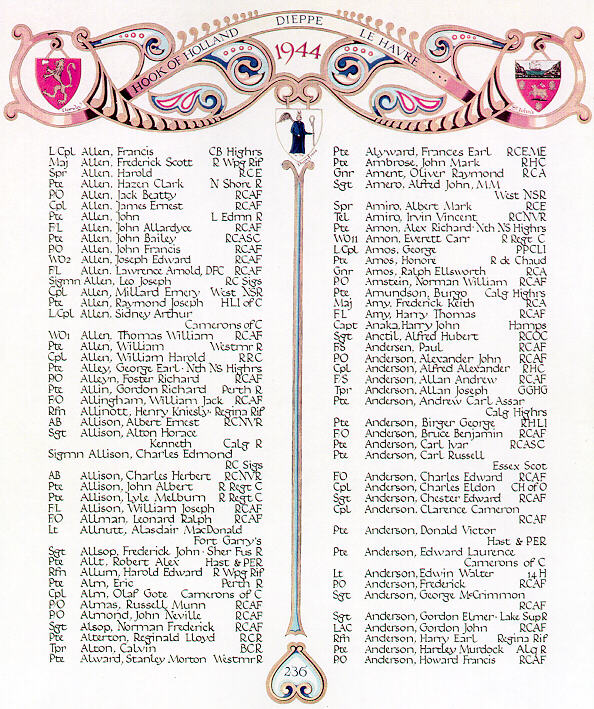 HOOK OF HOLLAND DIEPPE LE HAVRE ...
1944
L Cpl Allen, Francis CB Highrs
Maj Allen, Frederick Scott R Wpg Rif
Spr Allen, Harold RCE
Pte Allen, Hazen Clark N Shore R
PO Allen, Jack Beatty RCAF
Cpl Allen, James Ernest RCAF
Pte Allen, John L Edmn R
FL Allen, John Allardyce RCAF
Pte Allen, John Bailey RCASC
PO Allen, John Francis RCAF
WO2 Allen, Joseph Edward RCAF
FL Allen, Lawrence Arnold, DFC RCAF
Sigmn Allen, Leo Joseph RC Sigs
Cpl Allen, Millard Emery West NSR
Pte Allen, Raymond Joseph HLI of C
L Cpl Allen, Sidney Arthur
Camerons of C
WO1 Allen, Thomas William RCAF
Pte Allen, William Westmr R
Cpl Allen, William Harold RRC
Pte Alley, George Earl · Nth NS Highrs
PO Alleyn, Foster Richard RCAF
Pte Allin, Gordon Richard Perth R
FO Allingham, William Jack RCAF
Rfn Allinott, Henry Kniesly · Regina Rif
AB Allison, Albert Ernest RCNVR
Sgt Allison, Alton Horace
Kenneth Calg R
Sigmn Allison, Charles Edmond
RC Sigs
AB Allison, Charles Herbert RCNVR
Pte Allison, John Albert R Regt C
Pte Allison, Lyle Melburn R Regt C
FL Allison, William Joseph RCAF
FO Allman, Leonard Ralph RCAF
Lt Allnutt, Alasdair MacDonald
Fort Garry's
Sgt Allsop, Frederick John · Sher Fus R
Pte Allt, Robert Alex Hast & PER
Rfn Allum, Harold Edward R Wpg Rif
Pte Alm, Eric Perth R
Cpl Alm, Olaf Gote Camerons of C
PO Almas, Russell Munn RCAF
PO Almond, John Neville RCAF
Sgt Alsop, Norman Frederick RCAF
Pte Alterton, Reginald Lloyd RCR
Tpr Alton, Calvin BCR
Pte Alward, Stanley Morton Westmr R
Pte Alyward, Frances Earl RCEME
Pte Ambrose, John Mark RHC
Gnr Ament, Oliver Raymond RCA
Sgt Amero, Alfred John, MM
West NSR
Spr Amiro, Albert Mark RCE
Tel Amiro, Irvin Vincent RCNVR
Pte Amon, Alex Richard · Nth NS Highrs
WO11 Amon, Everett Carr R Regt C
L Cpl Amos, George PPCLI
Pte Amos, Honore R de Chaud
Gnr Amos, Ralph Ellsworth RCA
PO Amstein, Norman William RCAF
Pte Amundson, Burgo Calg Highrs
Maj Amy, Frederick Keith RCA
FL Amy, Harry Thomas RCAF
Capt Anaka, Harry John Hamps
Sgt Anctil, Alfred Hubert RCOC
FS Andersen, Paul RCAF
PO Anderson, Alexander John RCAF
Cpl Anderson, Alfred Alexander RHC
FS Anderson, Allan Andrew RCAF
Tpr Anderson, Allan Joseph GGHG
Pte Anderson, Andrew Carl Assar
Calg Highrs
Pte Anderson, Birger George RHLI
FO Anderson, Bruce Benjamin RCAF
Pte Anderson, Carl Ivar RCASC
Pte Anderson, Carl Russell
Essex Scot
FO Anderson, Charles Edward RCAF
Cpl Anderson, Charles Eldon CH of O
Sgt Anderson, Chester Edward RCAF
Cpl Anderson, Clarence Cameron
RCAF
Pte Anderson, Donald Victor
Hast & PER
Pte Anderson, Edward Laurence
Camerons of C
Lt Anderson, Edwin Walter 14 H
PO Anderson, Frederick RCAF
Sgt Anderson, George McCrimmon
RCAF
Sgt Anderson, Gordon Elmer · Lake Sup R
LAC Anderson, Gordon John RCAF
Rfn Anderson, Harry Earl Regina Rif
Pte Anderson, Hartley Murdock Alq R
PO Anderson, Howard Francis RCAF
236